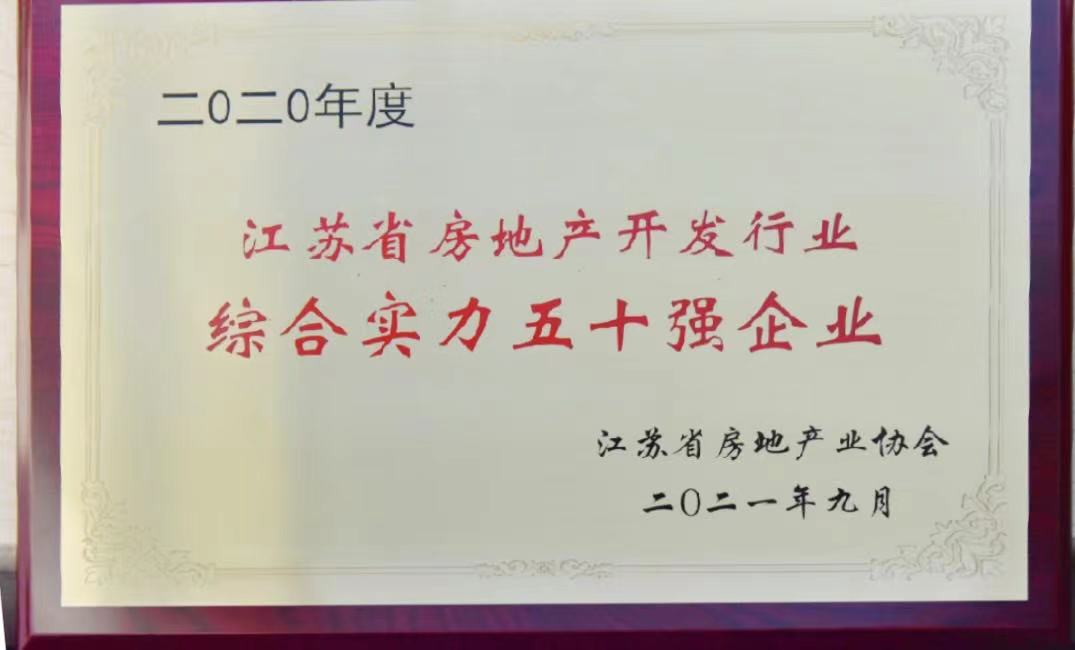 二〇二〇年度
江苏省房地产开发行业
综合实力五十强企业
江苏省房地产业协会
二〇二一年九月